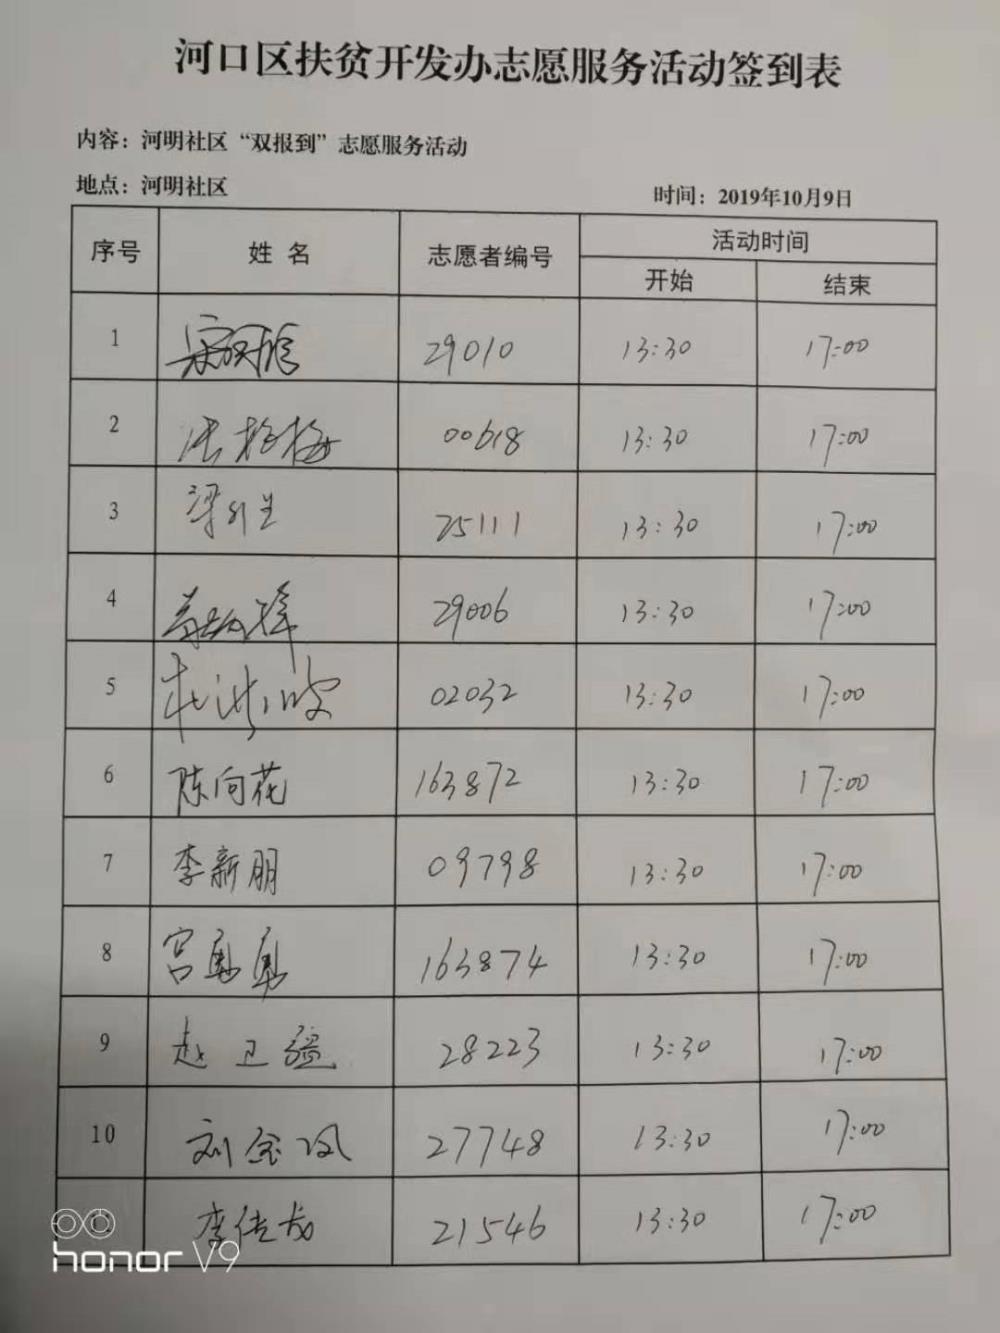 河口区扶贫开发办志愿服务活动签到表
内容：河明社区“双报到”志愿服务活动
地点：河明社区
时间：2019年10月9日
序号 姓 名 志愿者编号 活动时间
开始 结束
1 29010 13:30 17:00
2 00618 13:30 17:00
3 25111 13:30 17:00
4 29006 13:30 17:00
5 02032 13:30 17:00
6 陈向花 163872 13:30 17:00
7 李新朋 09798 13:30 17:00
8 163874 13:30 17:00
9 赵卫疆 28223 13:30 17:00
10 刘金凤 27748 13:30 17:00
李传龙 21546 13:30 17:00
honor V9